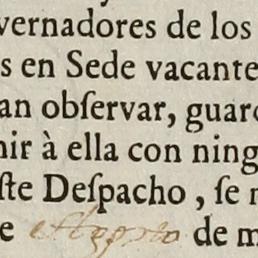 vernadores de los
s en Sede vacante
an obſervar, guard
nir à ella con ning
ſte Deſpacho, ſe n
e de m